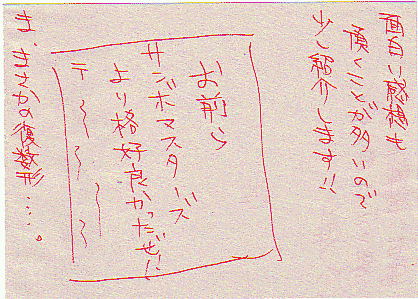 面白い感想も
頂くことが多いので
少し紹介します!!
お前ら
サンボマスターズ
より格好良かったぜ!!
ま、まさかの複数形....。